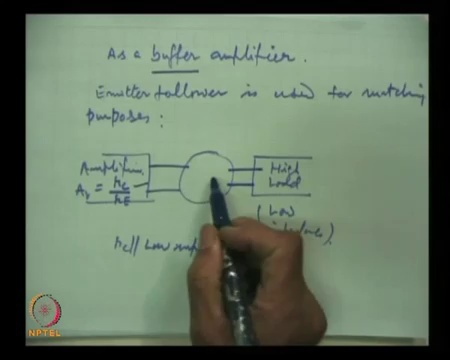 As a buffer amplifier.
Emitter follower is used for matching
purposes:
Amplifier
Av = rc / rE
High
Load
(Low
rc // Low
NPTEL